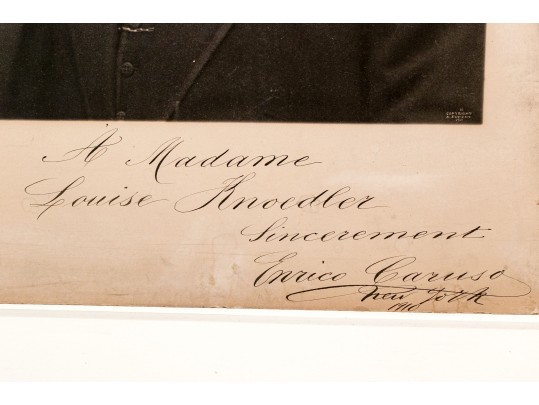 COPYRIGHT
A Madame
Louise Knoedler
Sincerement
Enrico Caruso
New York
1910